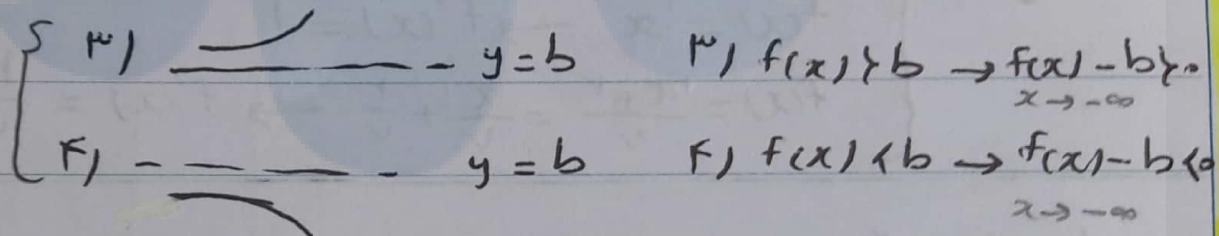 ۳) y = b ۳) f(x) > b → f(x) - b > ۰
x → -∞
۴) y = b ۴) f(x) < b → f(x) - b < ۰
x → -∞